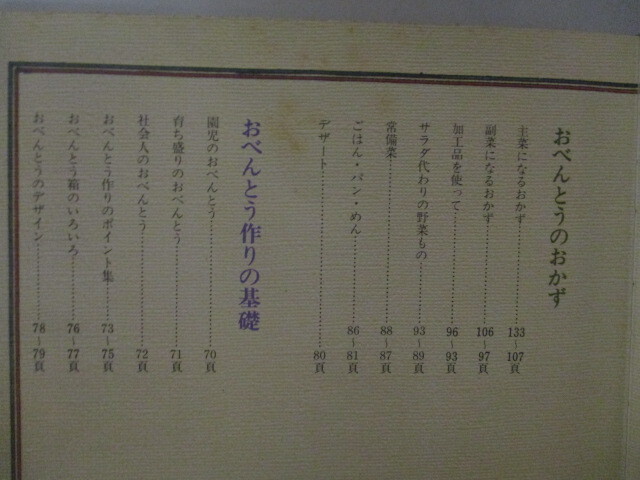 おべんとうのおかず
主菜になるおかず……………133～107頁
副菜になるおかず……………106～97頁
加工品を使って……………96～93頁
サラダ代わりの野菜もの……………93～89頁
常備菜……………88～87頁
ごはん・パン・めん……………86～81頁
デザート……………80頁
おべんとう作りの基礎
園児のおべんとう……………70頁
育ち盛りのおべんとう……………71頁
社会人のおべんとう……………72頁
おべんとう作りのポイント集……………73～75頁
おべんとう箱のいろいろ……………76～77頁
おべんとうのデザイン……………78～79頁